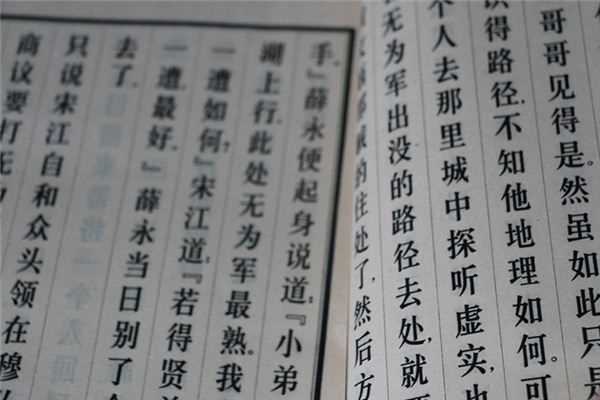 哥哥见得是。然虽如此,只是
识得路径,不知他地理如何。可
个人去那里城中探听虚实,
无为军出没的路径去处,就要
的住处了,然后方
手。』薛永便起身说道:『小弟
湖上行,此处无为军最熟。我
一遭如何?』宋江道:『若得贤
一遭最好。』薛永当日别了
去了。
只说宋江自和众头领在穆
商议要打无